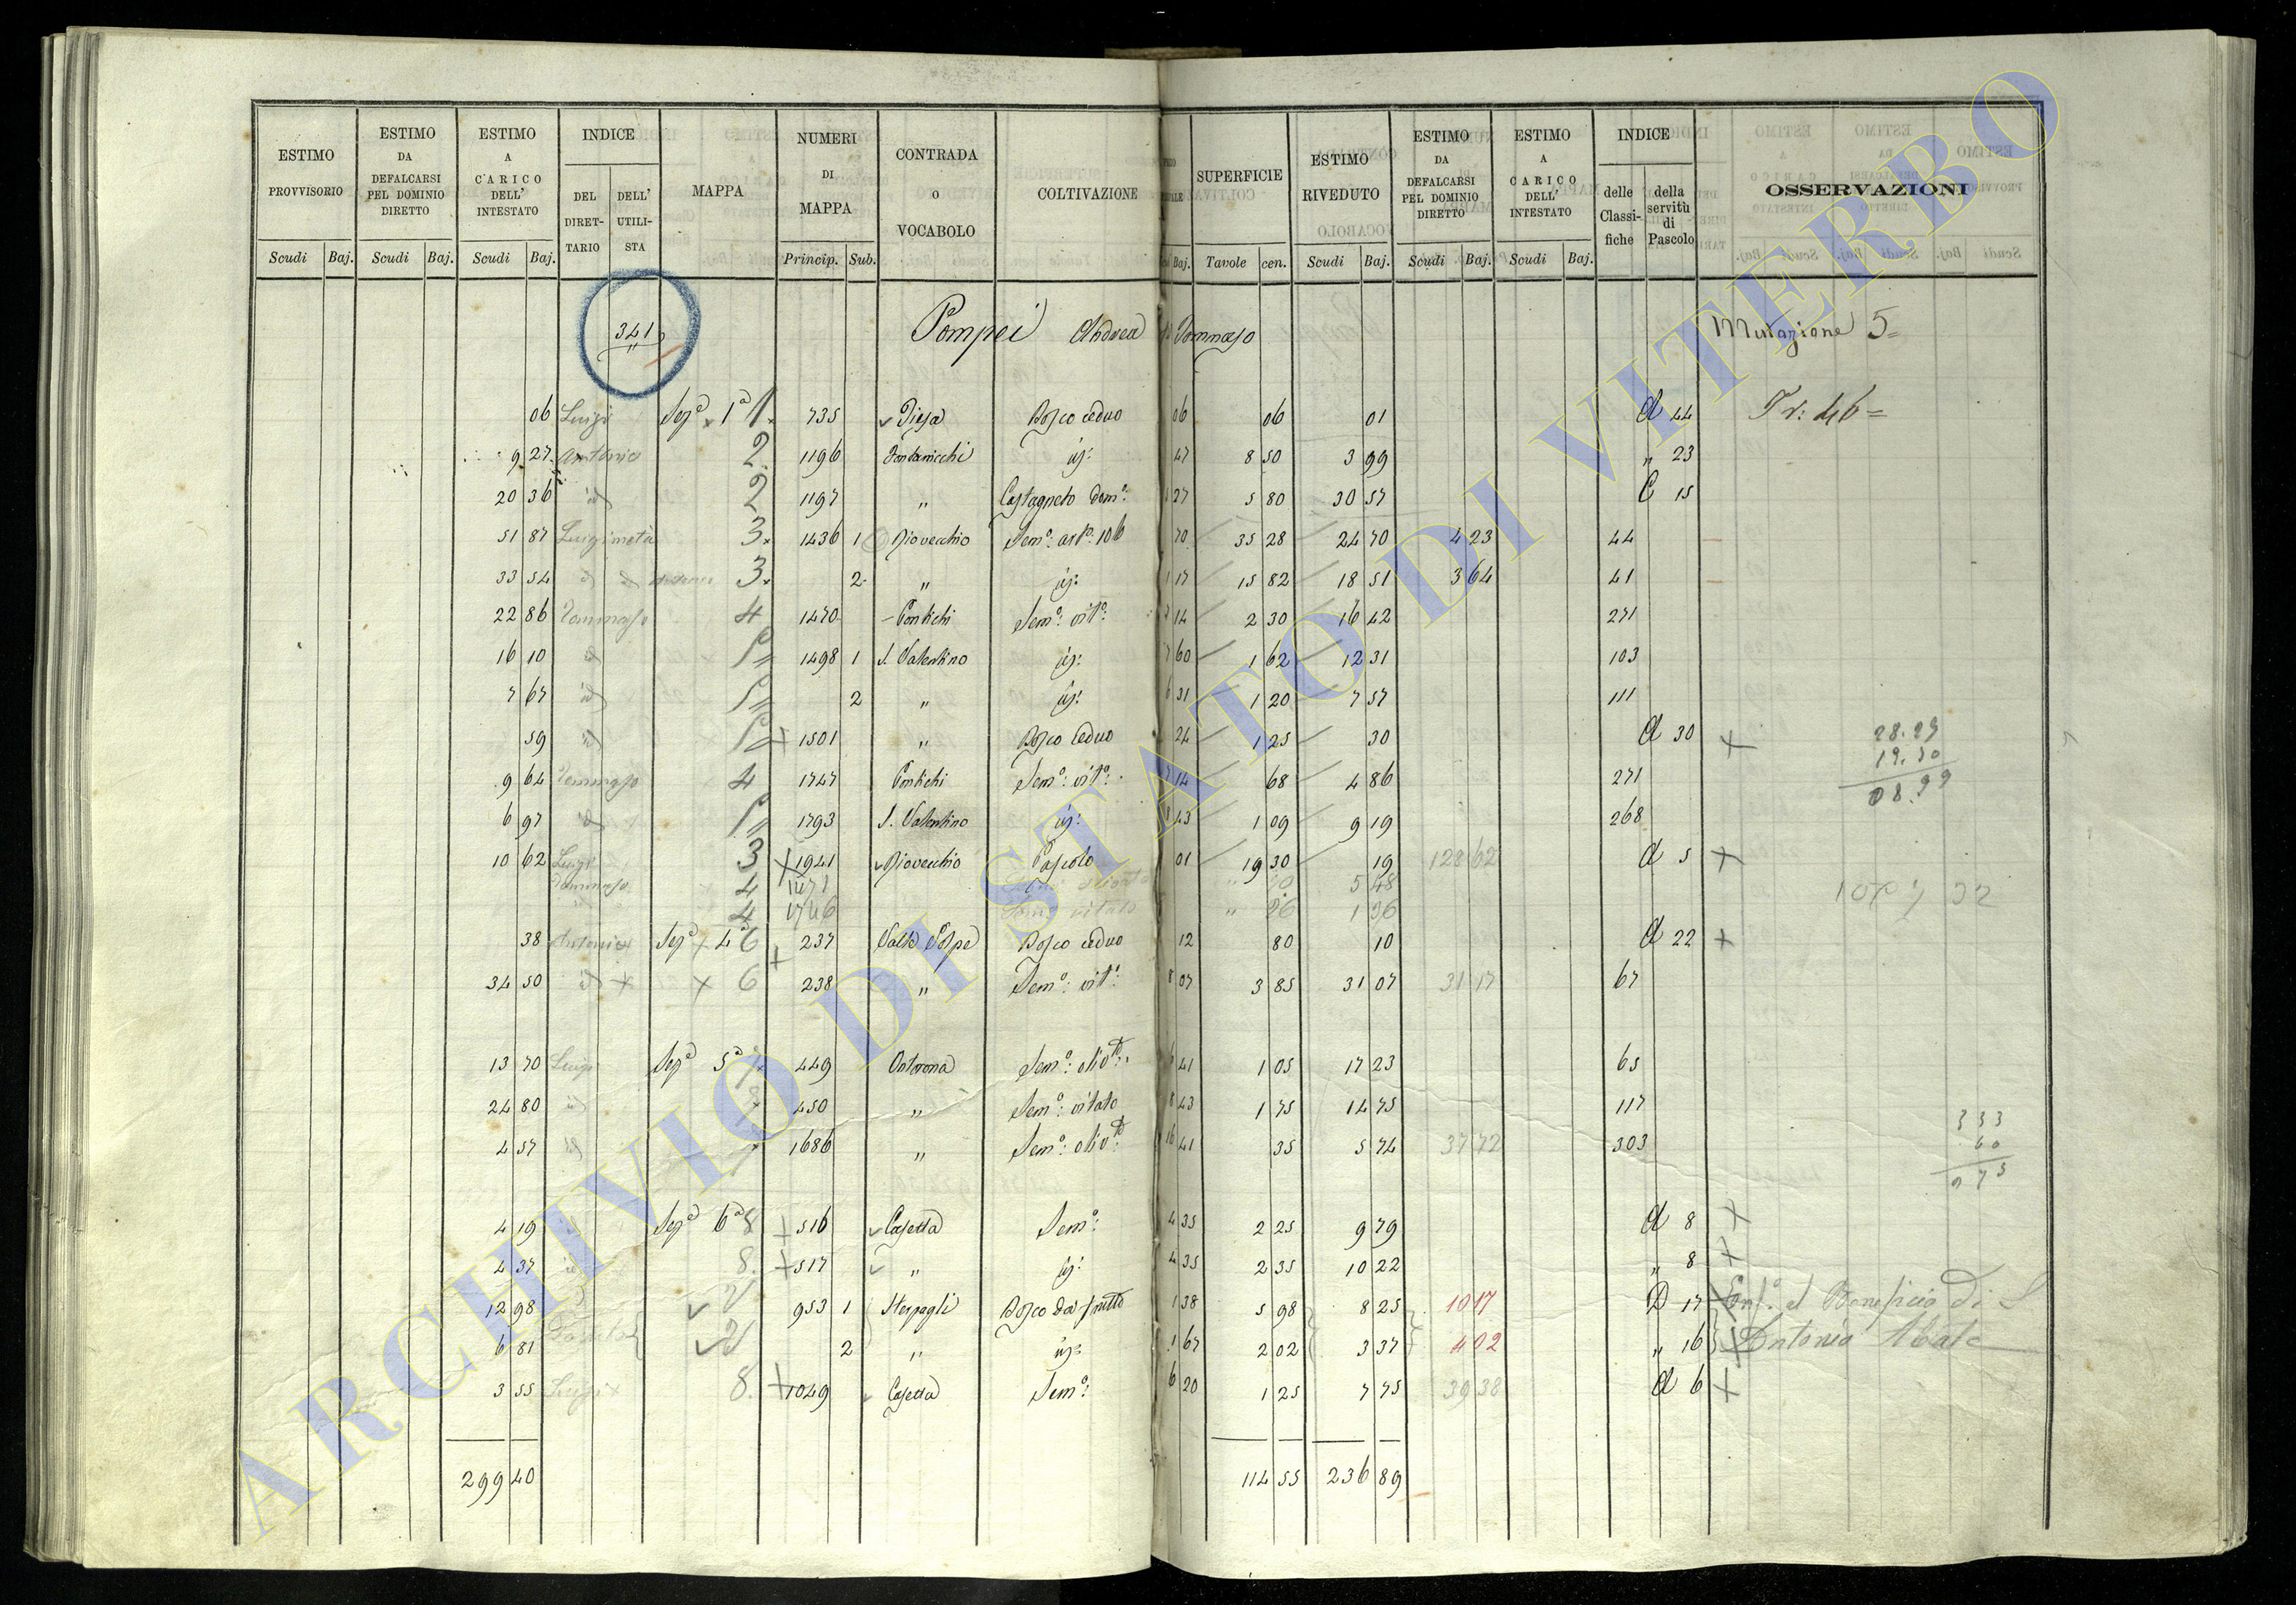 ESTIMO PROVVISORIO | ESTIMO DA DEFALCARSI PEL DOMINIO DIRETTO | ESTIMO A CARICO DELL' INTESTATO | INDICE | MAPPA | NUMERI DI MAPPA | CONTRADA O VOCABOLO | COLTIVAZIONE | SUPERFICIE | ESTIMO RIVEDUTO | ESTIMO DA DEFALCARSI PEL DOMINIO DIRETTO | ESTIMO A CARICO DELL' INTESTATO | INDICE | OSSERVAZIONI
DEL DIRET-TARIO | DELL' UTILI-STA | delle Classi-fiche | della servitù di Pascolo
Scudi | Baj. | Scudi | Baj. | Scudi | Baj. | Princip. | Sub. | Baj. | Tavole | cen. | Scudi | Baj. | Scudi | Baj. | Scudi | Baj.
341 Pompei Andrea Tommaso Mutazione 5=
06 Luigi Sez.e 1a 1 735 Piega Bosco ceduo 06 06 01 A 44 Tr: 46=
9 27 Antonio 2 1196 id: 47 8 50 3 99 " 23
20 36 id 2 1197 " Castagneto dom.o: 27 5 80 30 57 C 15
51 87 Luigi metà 3 1436 1 Riovecchio Sem.o: 70 35 28 24 70 4 23 44
33 54 3 2 " id: 17 15 82 18 51 3 64 41
22 86 Tommaso 4 1470 Pontichi Sem.o: vit.o: 14 2 30 16 42 271
16 10 id 5 1498 1 S. Valentino id: 60 1 62 12 31 103
7 67 id 5 2 " id: 31 1 20 7 57 111
59 id 5 + 1501 " Bosco ceduo 24 1 25 30 A 30 +
9 64 Tommaso 4 1747 Pontichi Sem.o: vit.o: 14 68 4 86 271
6 97 id 5 1793 S. Valentino id: 43 1 09 9 19 268
10 62 Luigi 3 + 1941 Riovecchio Pascolo 01 19 30 19 128 62 A 5 +
Tommaso 4 5 48
4 1746 vitato " 26
38 Antonio Sez.e 4a 6 + 237 Valle Volpe Bosco ceduo 12 80 10 A 22 +
34 50 id + + 6 238 " Sem.o: vit.o: 8 07 3 85 31 07 31 17 67
13 70 Luigi Sez.e 5a 7 449 Ontorona Sem.o: oliv.to: 41 1 05 17 23 65
24 80 id 7 450 " Sem.o: vitato 8 43 1 75 14 75 117
4 57 id 7 1686 " Sem.o: oliv.to: 16 41 35 5 74 37 72 303
4 19 id Sez.e 6a 8 + 516 Casetta Sem.o: 4 35 2 25 9 79 A 8 +
4 37 id 8 + 517 " id: 4 35 2 35 10 22 " 8 +
12 98 953 1 Sterpagli Bosco da frutto 1 38 5 98 8 25 10 17 D 17 al Beneficio di S.
6 81 2 " id: 1 67 2 02 3 37 4 02 " 16 Antonio Abate
3 55 Luigi 8 + 1049 Casetta Sem.o: 6 20 1 25 7 75 39 38 A 6 +
299 40 114 55 236 89
ARCHIVIO DI STATO DI VITERBO